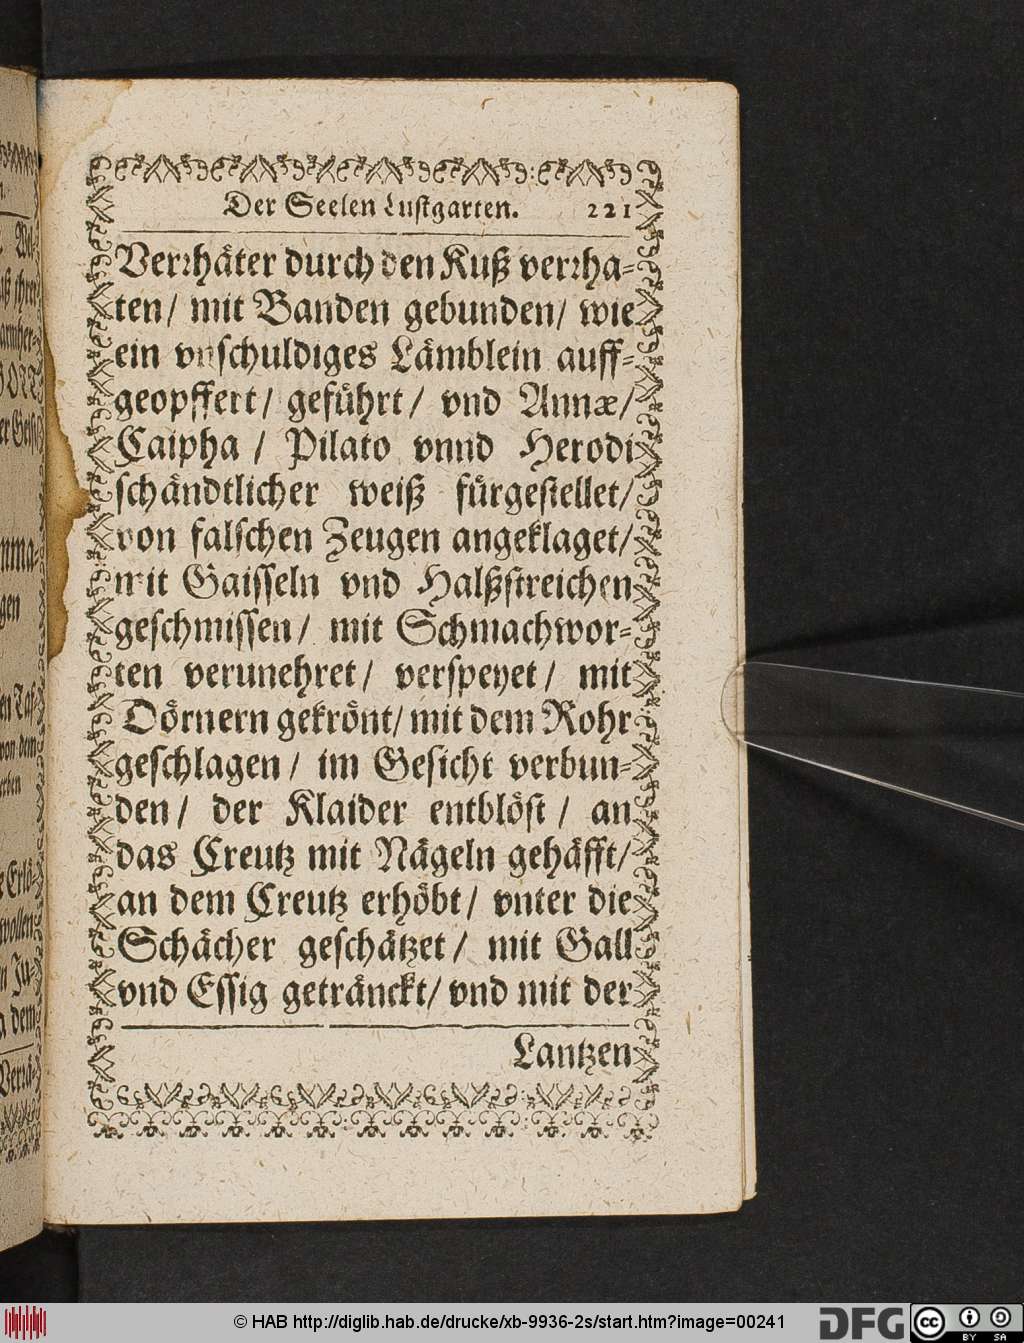 Der Seelen Lustgarten. 221
Verrhäter durch den Kuß verrha-
ten/ mit Banden gebunden/ wie
ein vnschuldiges Lämblein auff-
geopffert/ geführt/ vnd Annæ/
Caipha / Pilato vnnd Herodi
schändtlicher weiß fürgestellet/
von falschen Zeugen angeklaget/
mit Gaisseln vnd Halßstreichen
geschmissen/ mit Schmachwor-
ten verunehret/ verspeyet/ mit
Dörnern gekrönt/ mit dem Rohr
geschlagen/ im Gesicht verbun-
den/ der Klaider entblöst/ an
das Creutz mit Nägeln gehäfft/
an dem Creutz erhöbt/ vnter die
Schächer geschätzet/ mit Gall
vnd Essig getränckt/ vnd mit der
Lantzen
© HAB http://diglib.hab.de/drucke/xb-9936-2s/start.htm?image=00241
DFG
cc BY SA